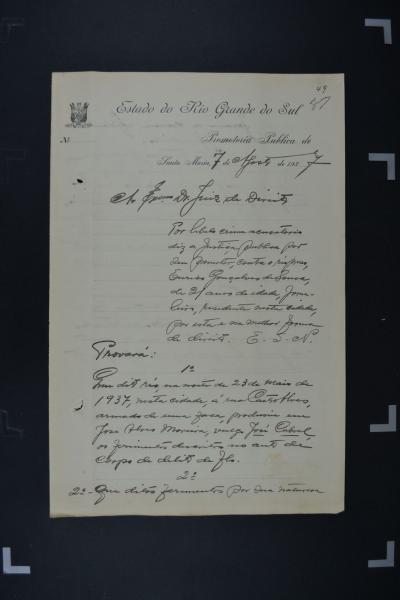 49
Estado do Rio Grande do Sul
Nº
Promotoria Publica de
Santa Maria, 7 de Agosto de 1937
Ao Exmo Dr. Juiz de Direito
Por libelo crime accusatorio
diz a Justiça publica por
seu promotor, contra o réo preso,
Eurico Gonçalves de Souza,
de 21 anos de idade, jorna-
leiro, residente nesta cidade,
por esta e na melhor forma
de direito. E. S. N.
Provará:
1º
Que dito réo, na noite de 23 de Maio de
1937, nesta cidade, á rua Castro Alves,
armado de uma faca, produziu em
José Alves Moreira, vulgo José Cabral,
os ferimentos descritos no auto de
corpo de delito de fls.
2º
2º - Que ditos ferimentos por sua natureza